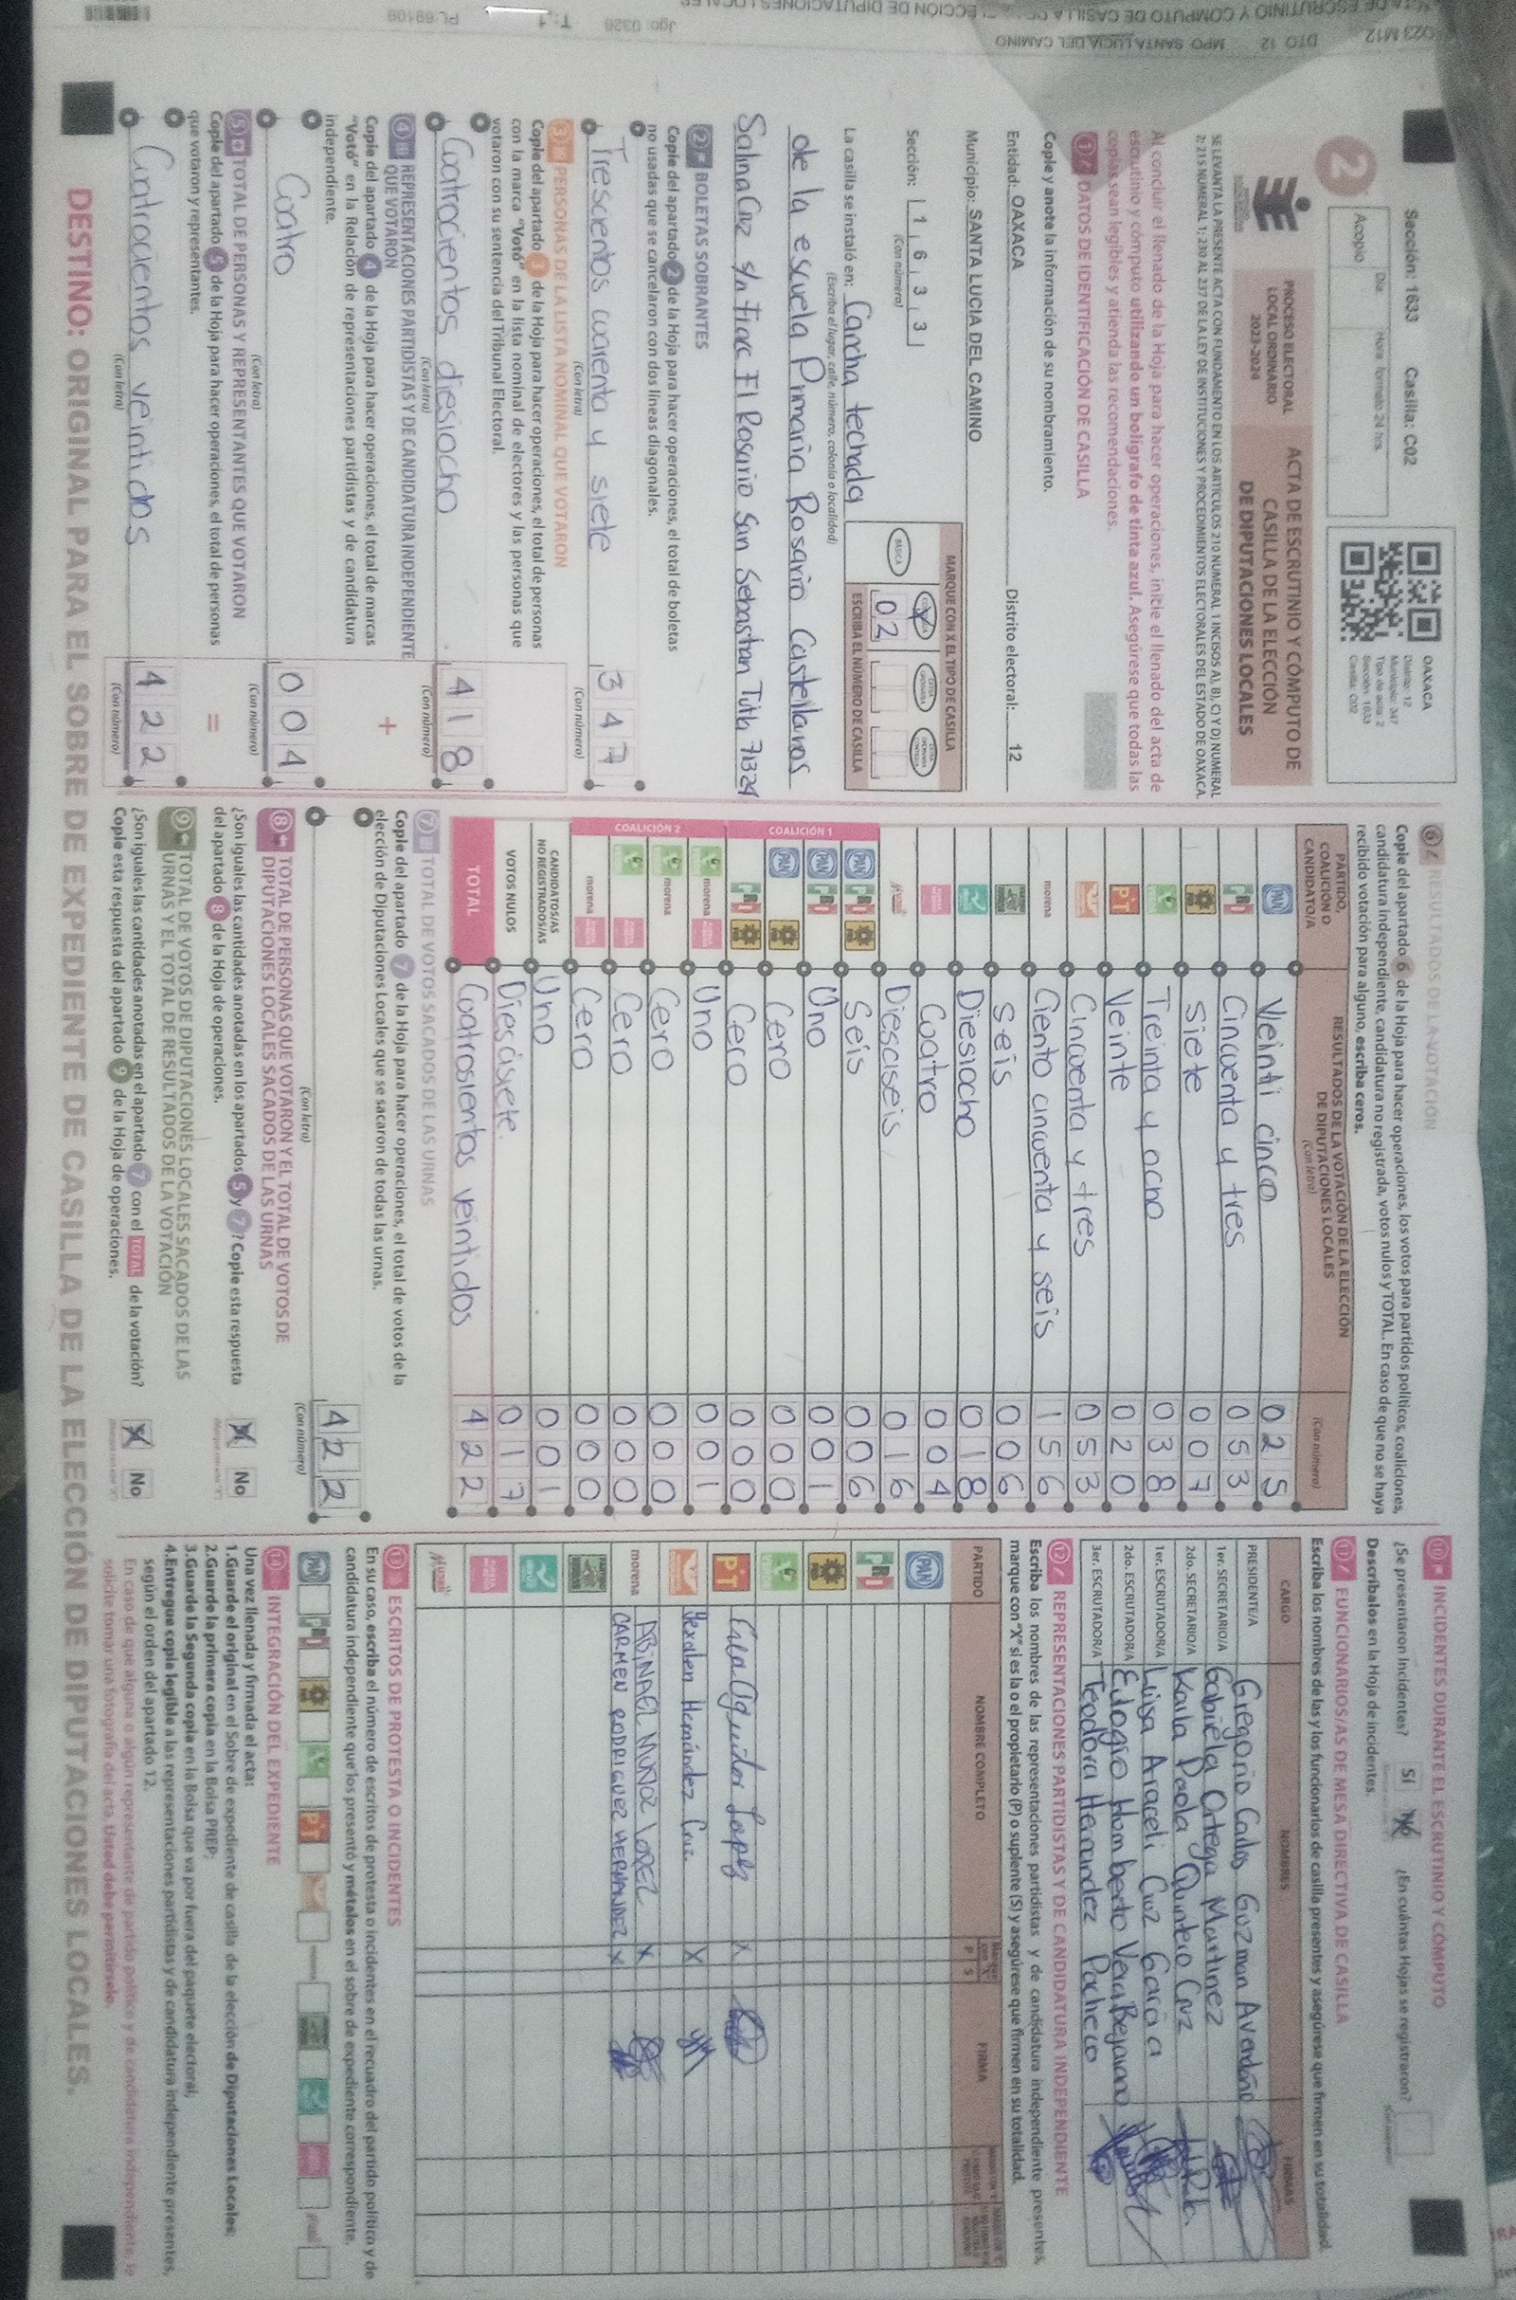 Sección: 1633 Casilla: C02
2
Día Hora formato 24 hrs.
Acopio
OAXACA
Distrito: 12
Municipio: 347
Tipo de acta: 2
Sección: 1633
Casilla: C02
PROCESO ELECTORAL
LOCAL ORDINARIO
2023-2024
ACTA DE ESCRUTINIO Y CÓMPUTO DE
CASILLA DE LA ELECCIÓN
DE DIPUTACIONES LOCALES
SE LEVANTA LA PRESENTE ACTA CON FUNDAMENTO EN LOS ARTÍCULOS 210 NUMERAL 1 INCISOS A), B), C) Y D) NUMERAL
2; 215 NUMERAL 1; 230 AL 237 DE LA LEY DE INSTITUCIONES Y PROCEDIMIENTOS ELECTORALES DEL ESTADO DE OAXACA.
Al concluir el llenado de la Hoja para hacer operaciones, inicie el llenado del acta de
escrutinio y cómputo utilizando un bolígrafo de tinta azul. Asegúrese que todas las
copias sean legibles y atienda las recomendaciones.
1 DATOS DE IDENTIFICACIÓN DE CASILLA
Copie y anote la información de su nombramiento.
Entidad: OAXACA Distrito electoral: 12
Municipio: SANTA LUCIA DEL CAMINO
Sección: 1 6 3 3
(Con número)
MARQUE CON X EL TIPO DE CASILLA
BÁSICA
02
ESCRIBA EL NÚMERO DE CASILLA
La casilla se instaló en: Cancha techada
(Escriba el lugar, calle, número, colonia o localidad)
de la escuela Primaria Rosario Castellanos
Salina Cruz s/n Fracc El Rosario San Sebastian Tutla 71324
2 BOLETAS SOBRANTES
Copie del apartado 2 de la Hoja para hacer operaciones, el total de boletas
no usadas que se cancelaron con dos líneas diagonales.
Trescientos cuarenta y siete 3 4 7
(Con letra) (Con número)
3 PERSONAS DE LA LISTA NOMINAL QUE VOTARON
Copie del apartado 3 de la Hoja para hacer operaciones, el total de personas
con la marca "Votó" en la lista nominal de electores y las personas que
votaron con su sentencia del Tribunal Electoral.
Coatrocientos diesiocho 4 1 8
(Con letra) (Con número)
4 REPRESENTACIONES PARTIDISTAS Y DE CANDIDATURA INDEPENDIENTE
QUE VOTARON
Copie del apartado 4 de la Hoja para hacer operaciones, el total de marcas
"Votó" en la Relación de representaciones partidistas y de candidatura
independiente.
+
Coatro 0 0 4
(Con letra) (Con número)
5 TOTAL DE PERSONAS Y REPRESENTANTES QUE VOTARON
Copie del apartado 5 de la Hoja para hacer operaciones, el total de personas
que votaron y representantes.
=
Cuatrocientos veintidos 4 2 2
(Con letra) (Con número)
6 RESULTADOS DE LA VOTACIÓN
Copie del apartado 6 de la Hoja para hacer operaciones, los votos para partidos políticos, coaliciones,
candidatura independiente, candidatura no registrada, votos nulos y TOTAL. En caso de que no se haya
recibido votación para alguno, escriba ceros.
PARTIDO,
COALICIÓN O
CANDIDATO/A
RESULTADOS DE LA VOTACIÓN DE LA ELECCIÓN
DE DIPUTACIONES LOCALES
(Con letra)
(Con número)
PAN Veinti cinco 0 2 5
PRI Cincuenta y tres 0 5 3
PRD siete 0 0 7
Treinta y ocho 0 3 8
PT Veinte 0 2 0
Cincuenta y tres 0 5 3
morena Ciento cincuenta y seis 1 5 6
seis 0 0 6
Diesiocho 0 1 8
Coatro 0 0 4
Diesciseis 0 1 6
COALICIÓN 1
PAN PRI PRD Seis 0 0 6
PAN PRI Uno 0 0 1
PAN PRD Cero 0 0 0
PRI PRD Cero 0 0 0
COALICIÓN 2
morena Uno 0 0 1
morena Cero 0 0 0
Cero 0 0 0
morena Cero 0 0 0
CANDIDATOS/AS
NO REGISTRADOS/AS Uno 0 0 1
VOTOS NULOS Diescisiete 0 1 7
TOTAL Coatrosientos veintidos 4 2 2
7 TOTAL DE VOTOS SACADOS DE LAS URNAS
Copie del apartado 7 de la Hoja para hacer operaciones, el total de votos de la
elección de Diputaciones Locales que se sacaron de todas las urnas.
4 2 2
(Con letra) (Con número)
8 TOTAL DE PERSONAS QUE VOTARON Y EL TOTAL DE VOTOS DE
DIPUTACIONES LOCALES SACADOS DE LAS URNAS
¿Son iguales las cantidades anotadas en los apartados 5 y 7? Copie esta respuesta
del apartado 8 de la Hoja de operaciones.
No
9 TOTAL DE VOTOS DE DIPUTACIONES LOCALES SACADOS DE LAS
URNAS Y EL TOTAL DE RESULTADOS DE LA VOTACIÓN
¿Son iguales las cantidades anotadas en el apartado 7 con el TOTAL de la votación?
Copie esta respuesta del apartado 9 de la Hoja de operaciones.
No
10 INCIDENTES DURANTE EL ESCRUTINIO Y CÓMPUTO
¿Se presentaron incidentes? Sí No ¿En cuántas Hojas se registraron?
Descríbalos en la Hoja de incidentes.
11 FUNCIONARIOS/AS DE MESA DIRECTIVA DE CASILLA
Escriba los nombres de las y los funcionarios de casilla presentes y asegúrese que firmen en su totalidad.
CARGO NOMBRES FIRMAS
PRESIDENTE/A Gregorio Carlos Guzman Avendaño
1er. SECRETARIO/A Gabriela Ortega Martinez
2do. SECRETARIO/A Karla Paola Quintero Cruz
1er. ESCRUTADOR/A Luisa Araceli Cruz García
2do. ESCRUTADOR/A Eulogio Homberto Vera Bejarano
3er. ESCRUTADOR/A Teodora Hernandez Pacheco
12 REPRESENTACIONES PARTIDISTAS Y DE CANDIDATURA INDEPENDIENTE
Escriba los nombres de las representaciones partidistas y de candidatura independiente presentes,
marque con "X" si es la o el propietario (P) o suplente (S) y asegúrese que firmen en su totalidad.
PARTIDO NOMBRE COMPLETO P S FIRMA
PAN
PRI
PRD
PT X
Hernández Cruz X
morena ABINAEL MUÑOZ LOPEZ X
CARMEN RODRIGUEZ HERNANDEZ X
13 ESCRITOS DE PROTESTA O INCIDENTES
En su caso, escriba el número de escritos de protesta o incidentes en el recuadro del partido político y de
candidatura independiente que los presentó y métalos en el sobre de expediente correspondiente.
PAN PRI PRD PT
14 INTEGRACIÓN DEL EXPEDIENTE
Una vez llenada y firmada el acta:
1.Guarde el original en el Sobre de expediente de casilla de la elección de Diputaciones Locales;
2.Guarde la primera copia en la Bolsa PREP;
3.Guarde la Segunda copia en la Bolsa que va por fuera del paquete electoral;
4.Entregue copia legible a las representaciones partidistas y de candidatura independiente presentes,
según el orden del apartado 12.
En caso de que alguna o algún representante de partido político y de candidatura independiente, le
solicite tomar una fotografía del acta. Usted debe permitírselo.
DESTINO: ORIGINAL PARA EL SOBRE DE EXPEDIENTE DE CASILLA DE LA ELECCIÓN DE DIPUTACIONES LOCALES.
DTO 12 MPO SANTA LUCIA DEL CAMINO